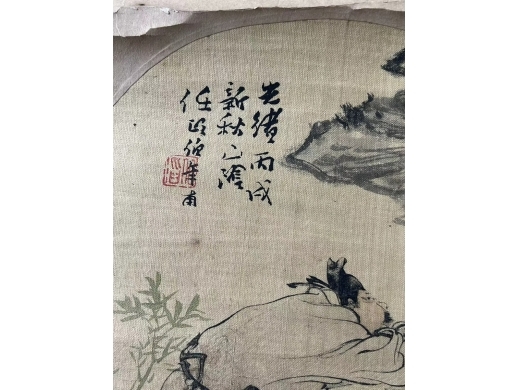 光緒丙戌
新秋山陰
任頤伯年甫